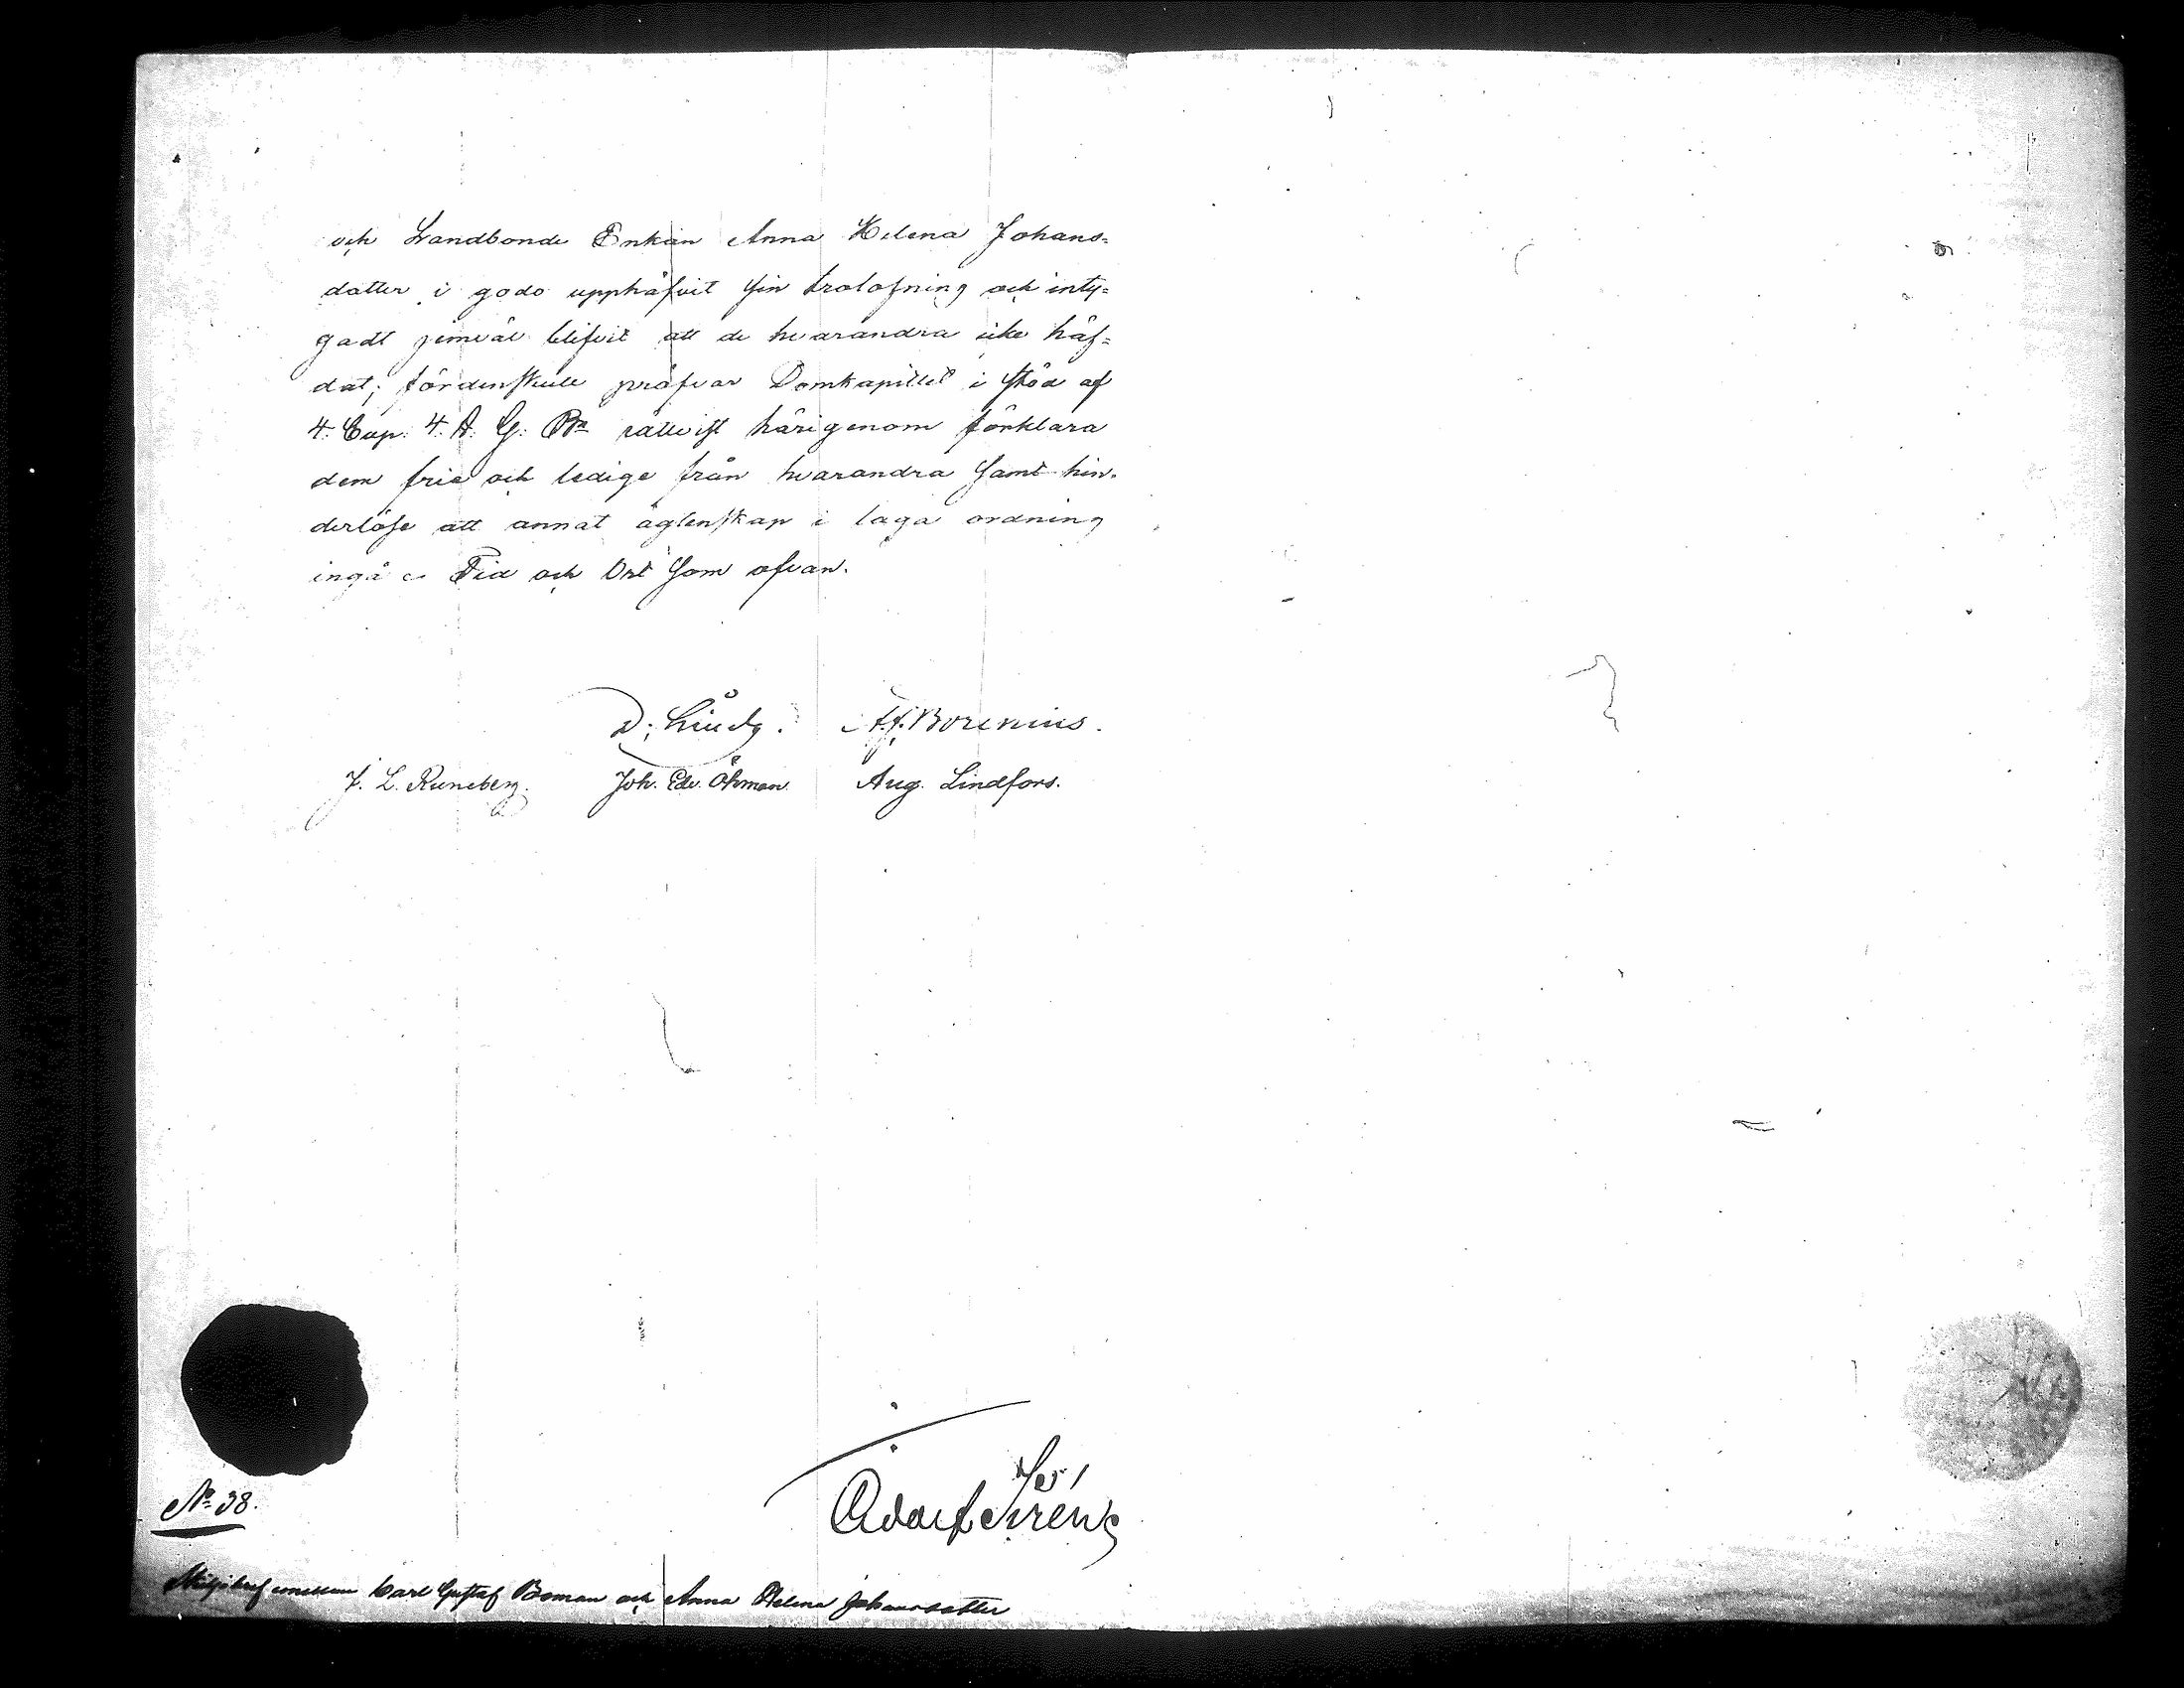 och Landbonde Enkan Anna Helena Johans=
dotter i godo upphäfvit sin trolofning och inty=
gadt jemväl blifvit att de hvarandra icke häf=
dat; fördenskull pröfvar Domkapitlet i stöd af
4. Cap. 4. §. G: B: rättvist härigenom förklara
dem fria och ledige från hvarandra samt hin-
derlöse att annat ägtenskap i laga ordning
ingå. Tid och Ort som ofvan.
A. F. Borenius.
J. L. Runeberg. Joh. Edv. Öhman Aug. Lindfors.
Adolf
No 38.
Skiljobref emellan Carl Gustaf Boman och Anna Helena Johansdotter